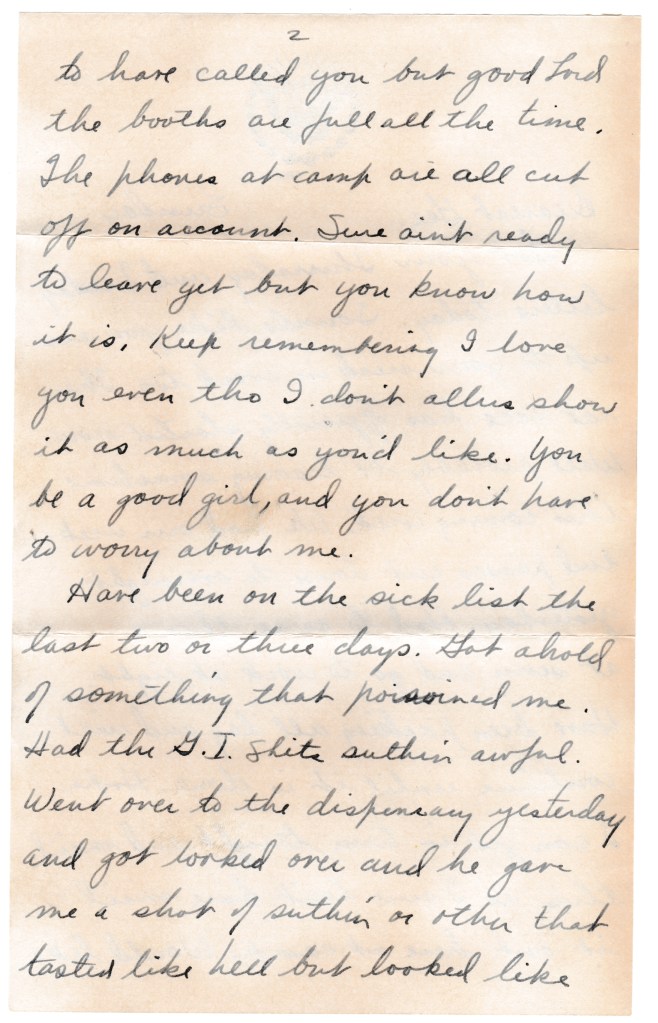 2
to have called you but good Lord
the booths are full all the time.
The phones at camp are all cut
off on account. Sure ain't ready
to leave yet but you know how
it is. Keep remembering I love
you even tho I don't allus show
it as much as you'd like. You
be a good girl, and you don't have
to worry about me.
Have been on the sick list the
last two or three days. Got ahold
of something that poisoined me.
Had the G.I. Shits suthin awful.
Went over to the dispensary yesterday
and got looked over and he gave
me a shot of suthin or other that
tasted like hell but looked like